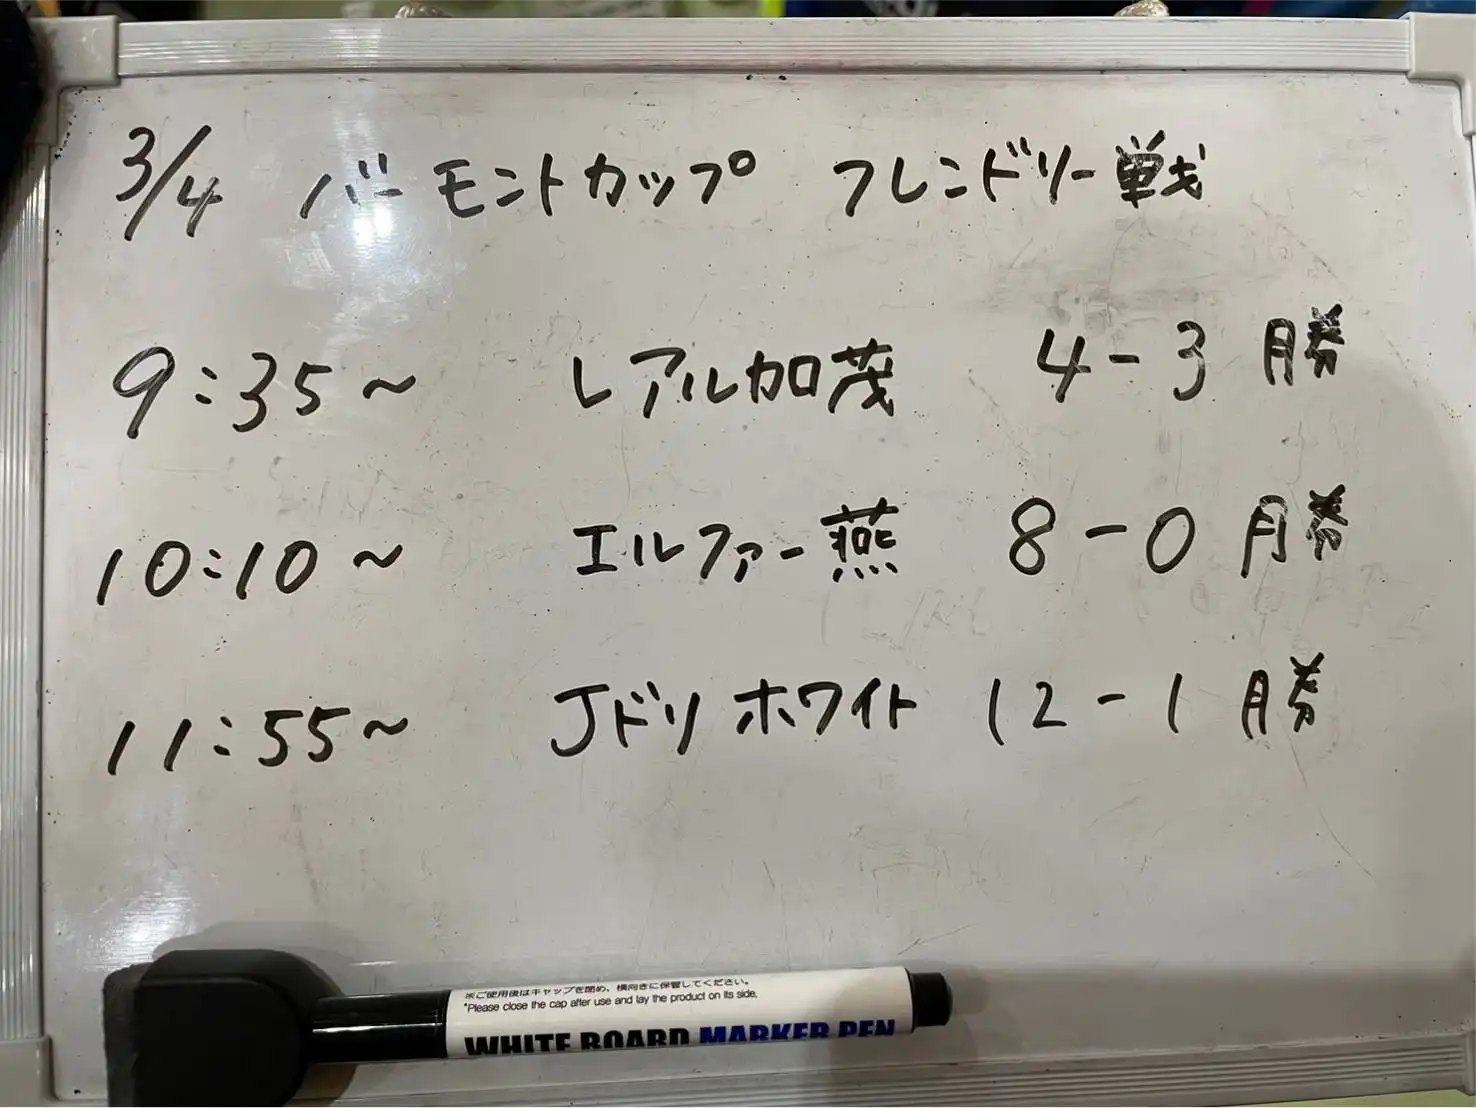 3/4 バーモントカップ フレンドリー戦
9:35~ レアル加茂 4-3 勝
10:10~ エルファー燕 8-0 勝
11:55~ Jドリホワイト 12-1 勝
※ご使用後はキャップを閉め、横向きに保管してください。
*Please close the cap after use and lay the product on its side.
WHITE BOARD MARKER PEN